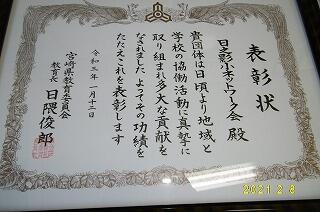 表彰状
日之影小ネットワーク会 殿
貴団体は日頃より地域と
学校の協働活動に真摯に
取り組まれ多大な貢献を
なされました よってその功績を
たたえこれを表彰します
令和三年 一月十二日
宮崎県教育委員会
教育長 日隈俊郎
2021 2 8